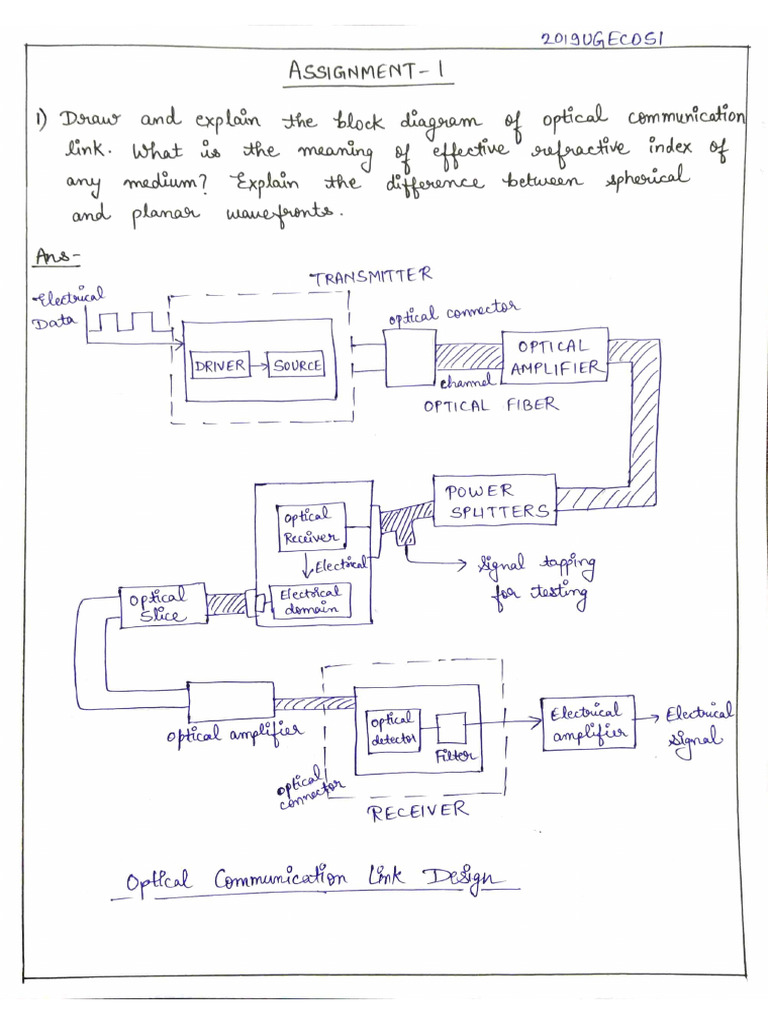 2019UGEC051
ASSIGNMENT-1
1) Draw and explain the block diagram of optical communication
link. What is the meaning of effective refractive index of
any medium? Explain the difference between spherical
and planar wavefronts.
Ans-
TRANSMITTER
Electrical
Data
DRIVER
SOURCE
optical connector
channel
OPTICAL FIBER
OPTICAL
AMPLIFIER
POWER
SPLITTERS
signal tapping
for testing
Optical
Receiver
Electrical
Electrical
domain
Optical
Slice
Optical amplifier
optical
connector
Optical
detector
Filter
RECEIVER
Electrical
amplifier
Electrical
signal
Optical Communication Link Design